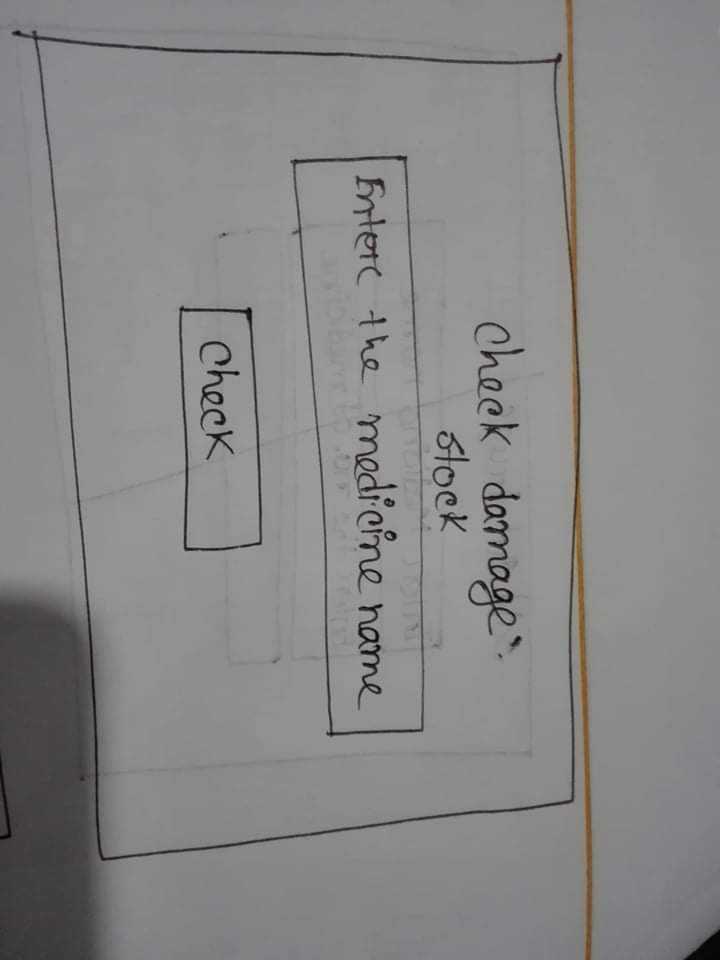 Check damage:
stock
Enter the medicine name
Check